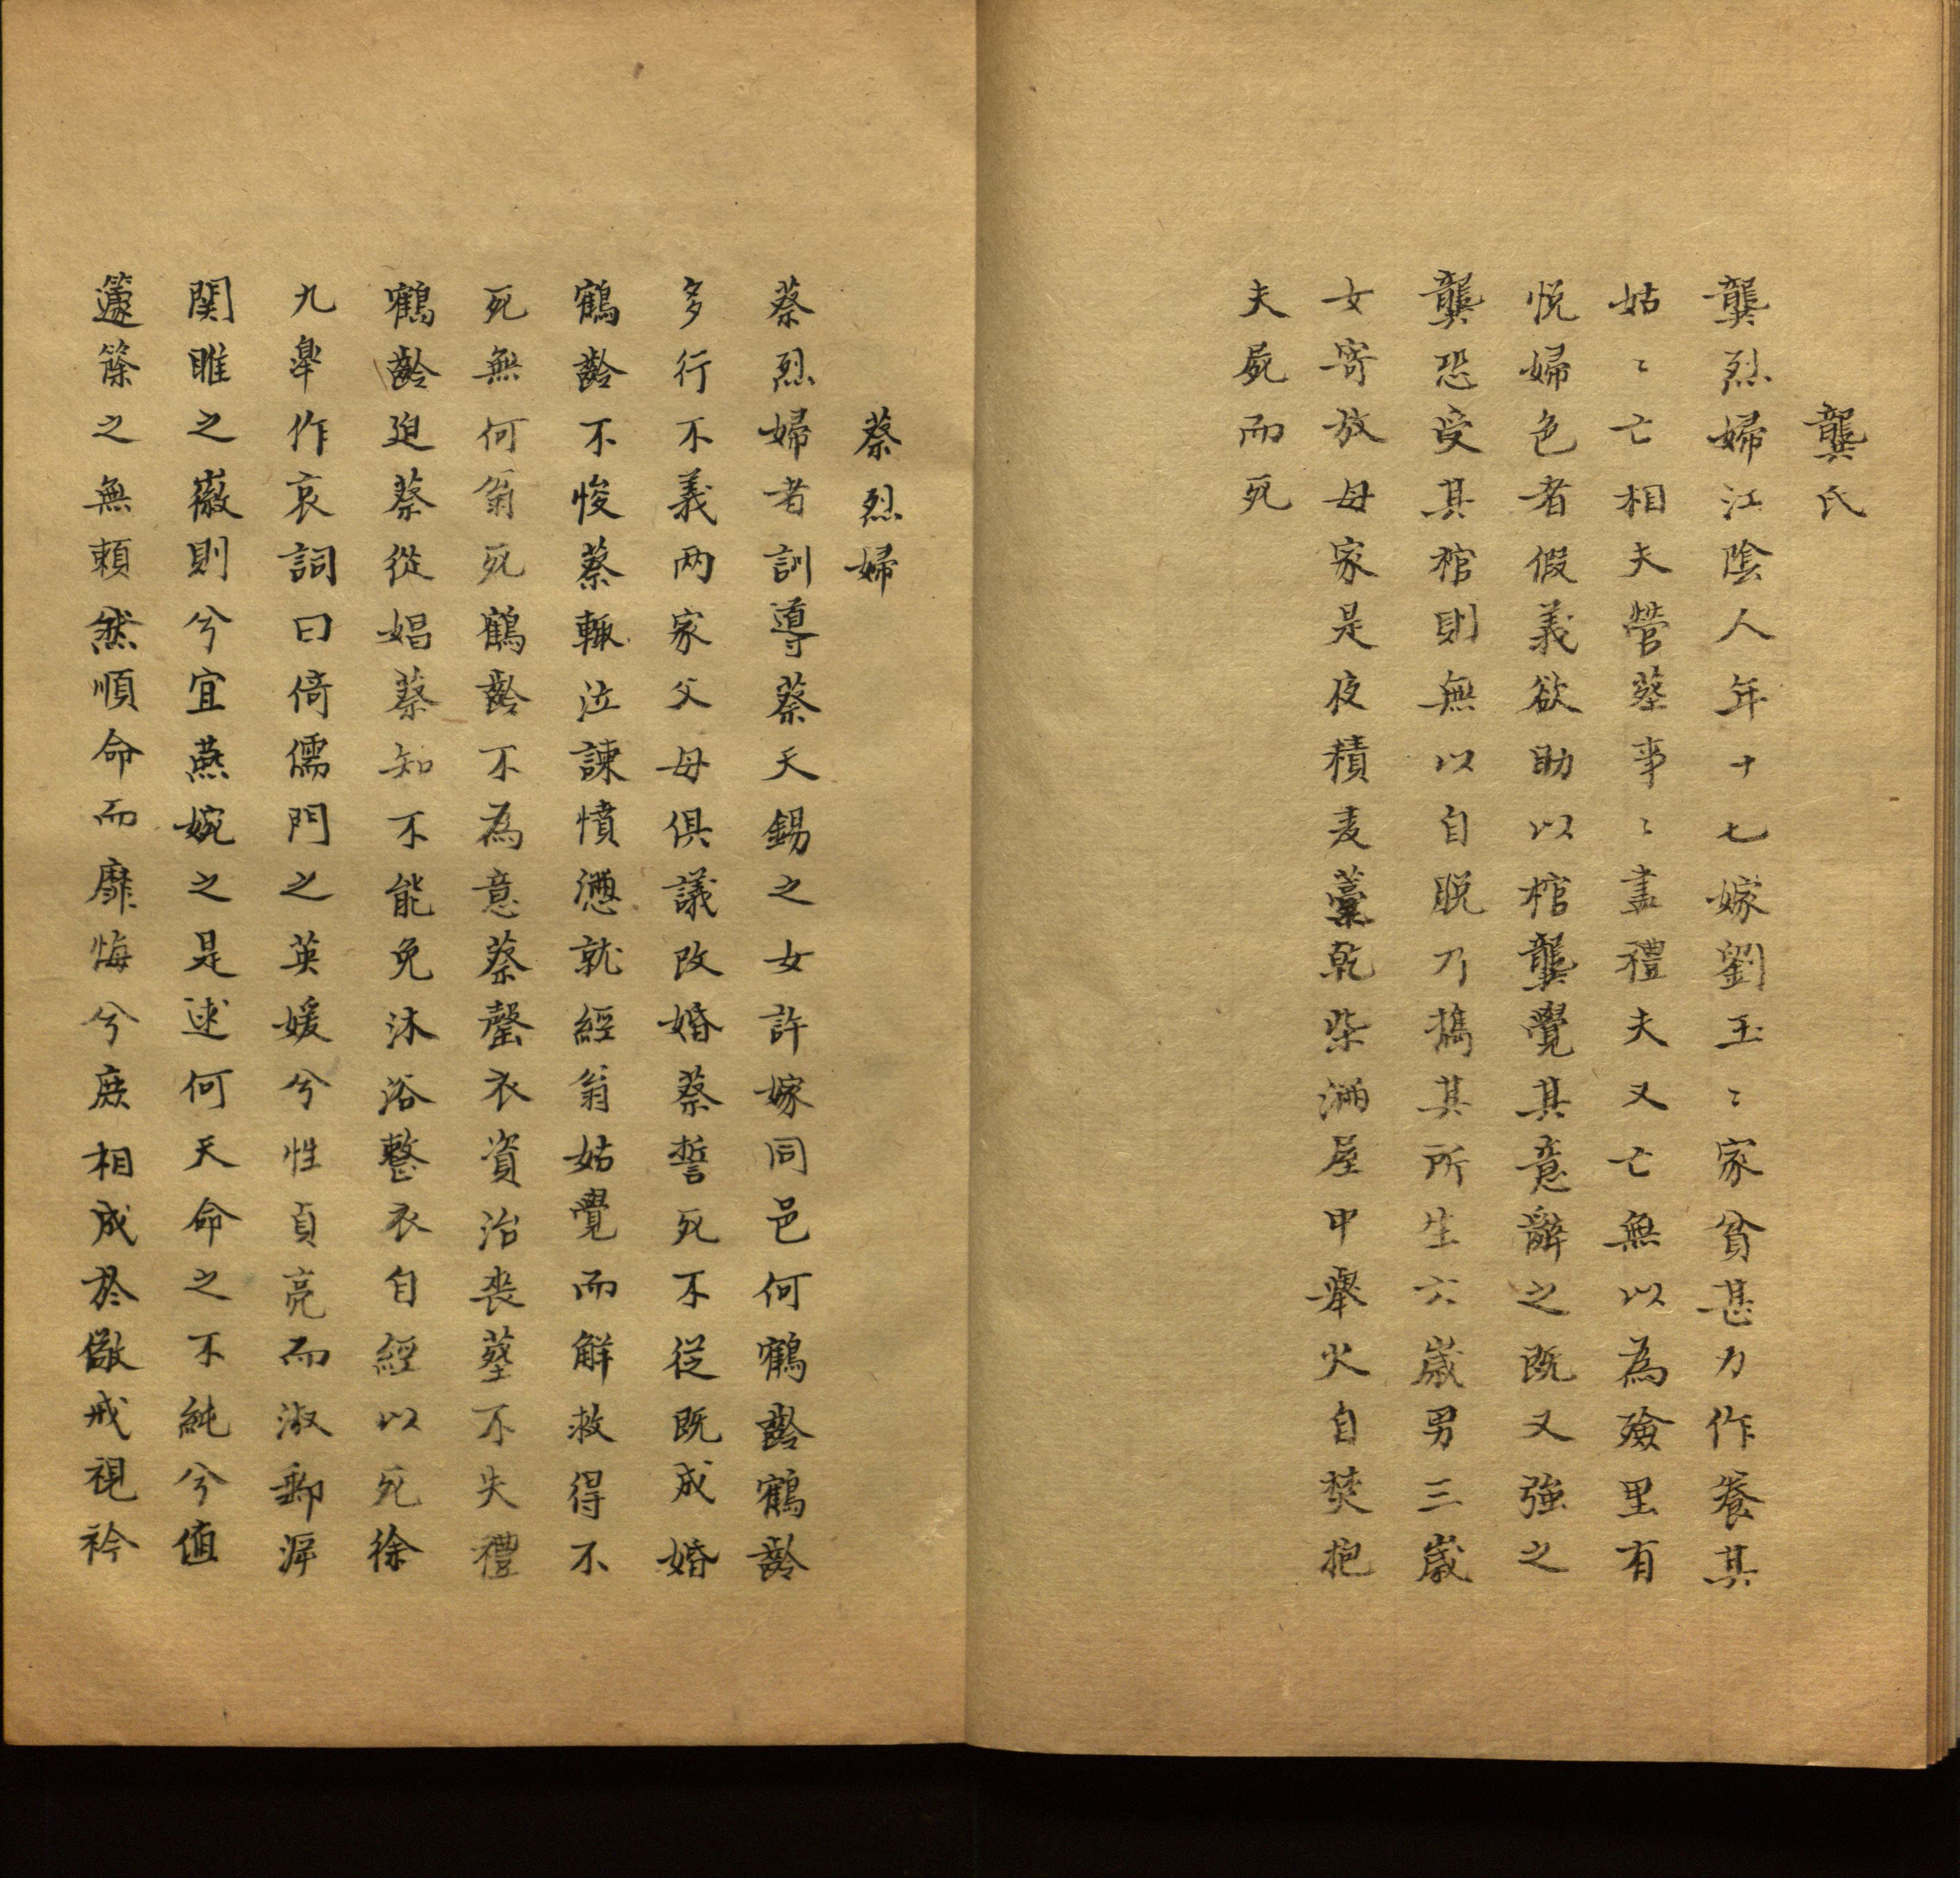 龔氏
龔烈婦江陰人年十七嫁劉玉〻家貧甚力作養其
姑〻亡相夫營塟事〻盡禮夫又亡無以為殮里有
悅婦色者假義欲助以棺龔覺其意辭之既又強之
龔恐受其棺則無以自脫乃携其所生六歲男三歲
女寄放母家是夜積麦藁乾柴滿屋中舉火自焚抱
夫屍而死
蔡烈婦
蔡烈婦者訓導蔡天錫之女許嫁同邑何鶴齡鶴齡
多行不義两家父母俱議改婚蔡誓死不從既成婚
鶴齡不悛蔡輒泣諫憤懣就經翁姑覺而解救得不
死無何翁死鶴齡不為意蔡罄衣資治丧塟不失禮
鶴齡迫蔡從娼蔡知不能免沐浴整衣自經以死徐
九皐作哀詞曰倚儒門之英媛兮性貞亮而淑郵渥
関雎之徽則兮宜燕婉之是逑何天命之不純兮值
籧篨之無頼然順命而靡悔兮庶相成於儆戒視衿